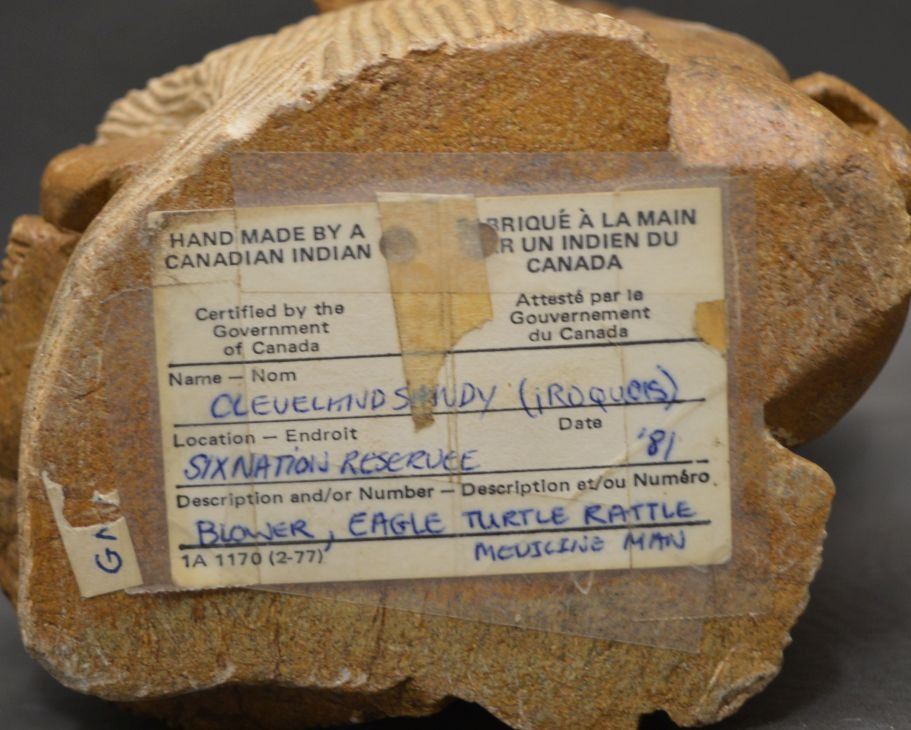 HAND MADE BY A
CANADIAN INDIAN
Certified by the
Government
of Canada
BRIQUÉ À LA MAIN
R UN INDIEN DU
CANADA
Attesté par le
Gouvernement
du Canada
Name – Nom
CLEVELAND SANDY (iROQUOIS)
Location – Endroit
Date
SIX NATiON RESERVEE '81
Description and/or Number – Description et/ou Numéro
BLOWER, EAGLE TURTLE RATTLE
MEDICINE MAN
1A 1170 (2-77)